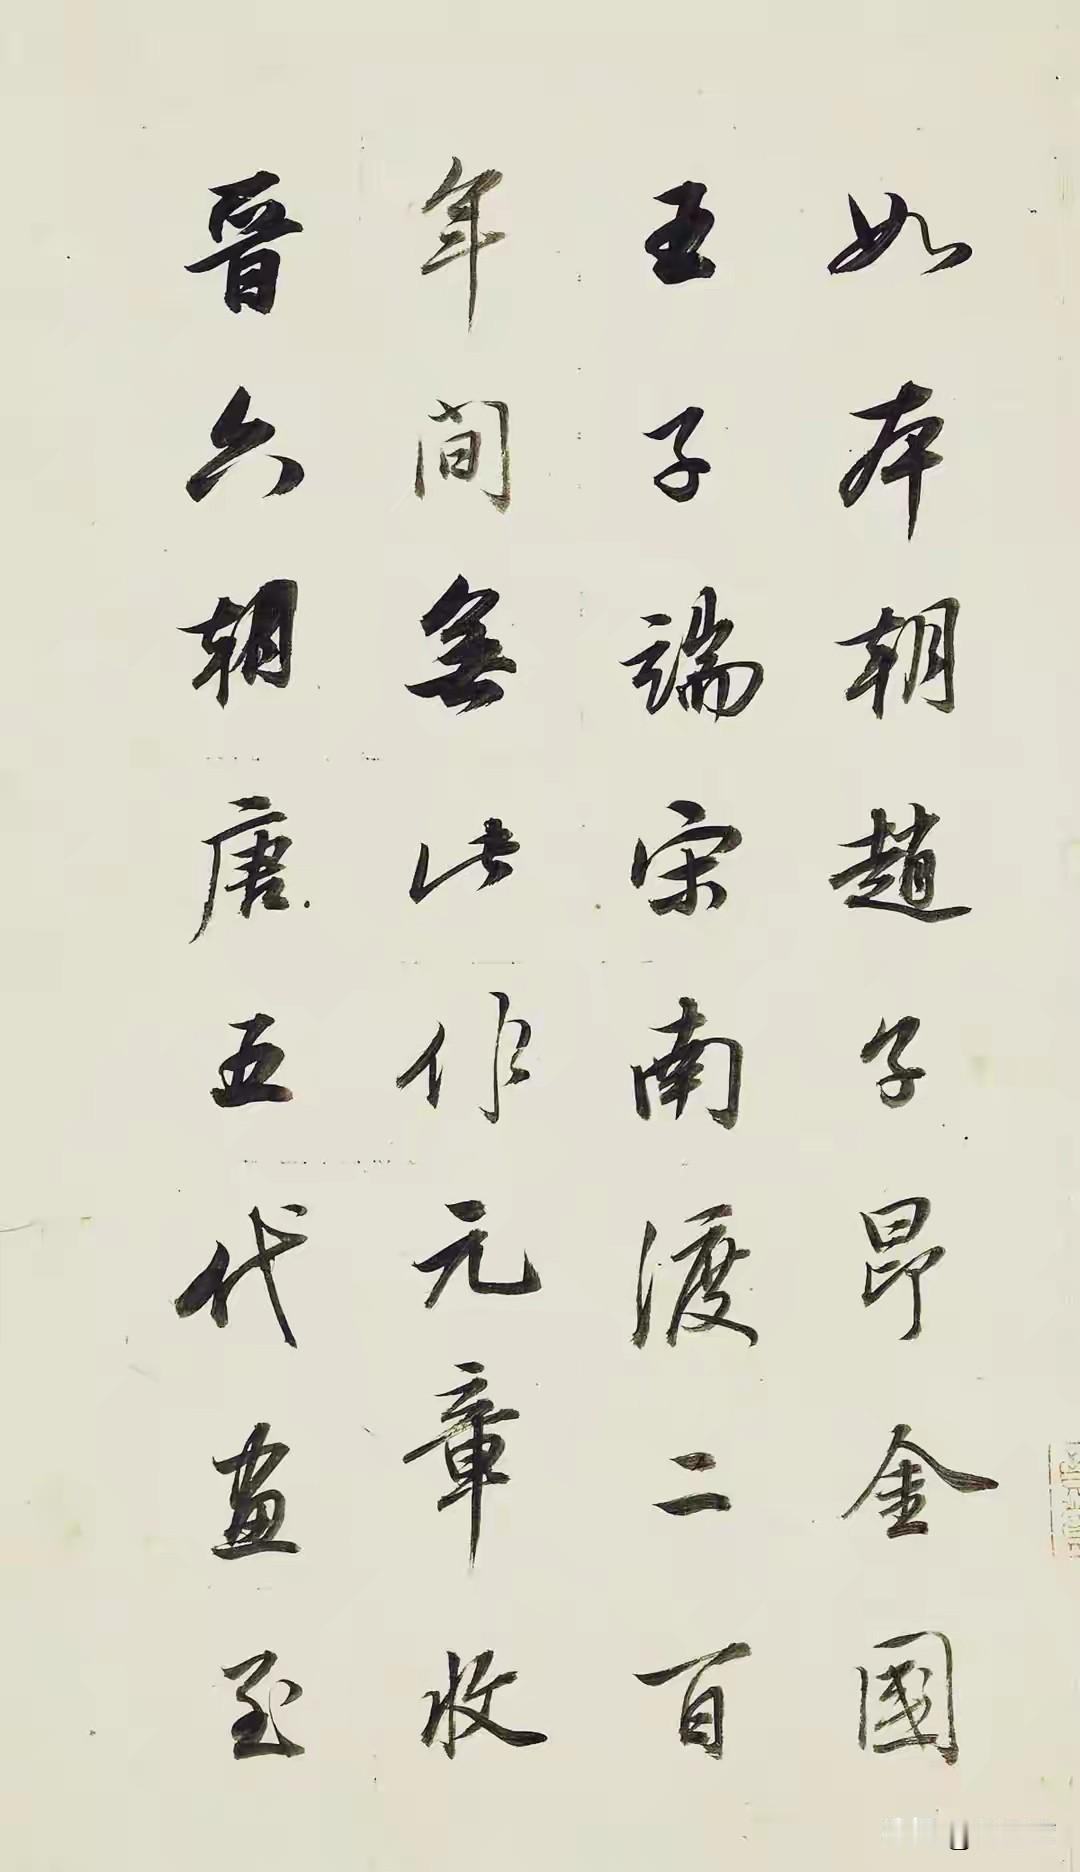 如本朝趙子昂金國
王子端宋南渡二百
年間無此作元章收
晉六朝唐五代畫至